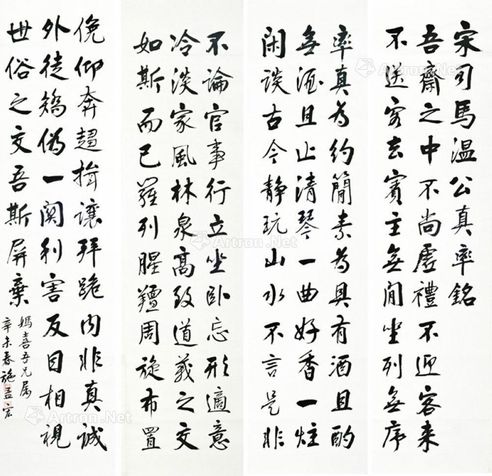 宋司馬溫公真率銘
吾齋之中不尚虛禮不迎客来
不送客去賓主無間坐列無序
率真為約簡素為具有酒且酌
無酒且止清琴一曲好香一炷
閑談古今静玩山水不言是非
不論官事行立坐卧忘形適意
冷淡家風林泉高致道義之交
如斯而已羅列腥羶周旋布置
俛仰奔趨揖讓拜跪内非真誠
外徒矯偽一關利害反目相視
世俗之交吾斯屏棄
喜吾兄属
辛未春施孟宏
Artron.Net